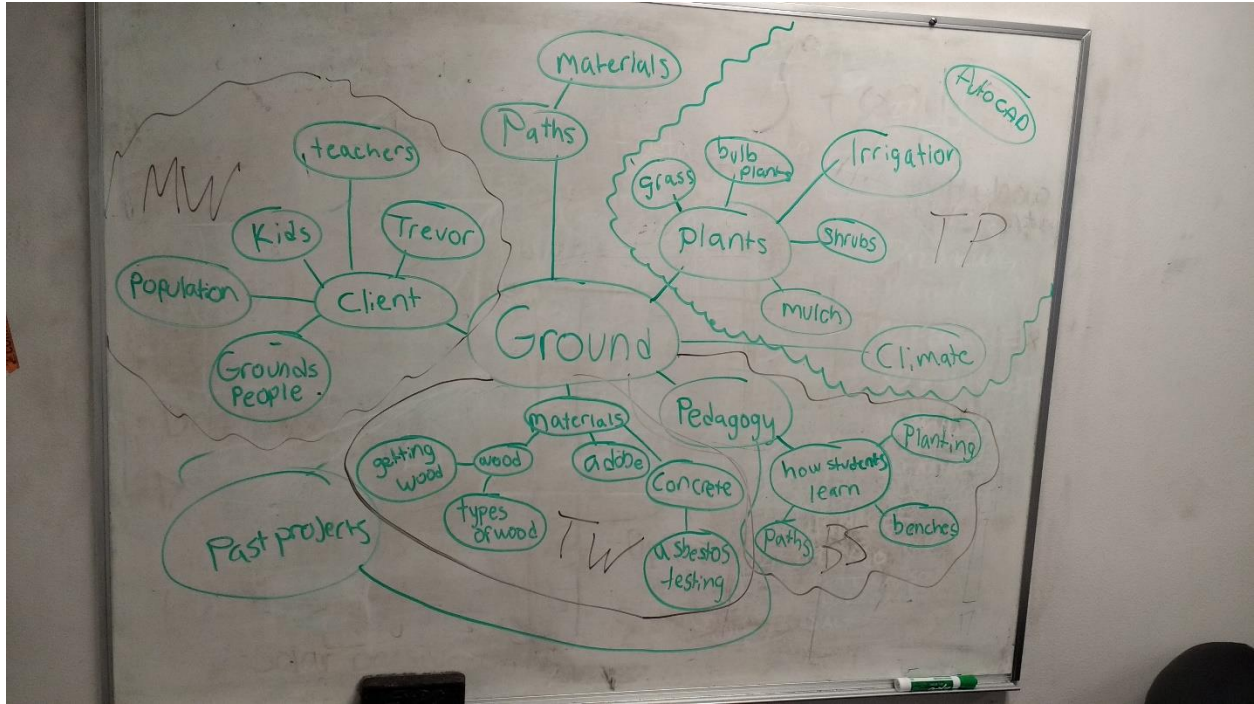 materials
Paths
AutoCAD
teachers
MW
Kids
Trevor
Population
Client
Grounds
People
grass
bulb
plants
Irrigation
Plants
shrubs
TP
mulch
Ground
Climate
materials
getting
wood
wood
adobe
types
of wood
Concrete
asbestos
testing
TW
Pedagogy
how students
learn
Planting
benches
Paths
BS
Past projects